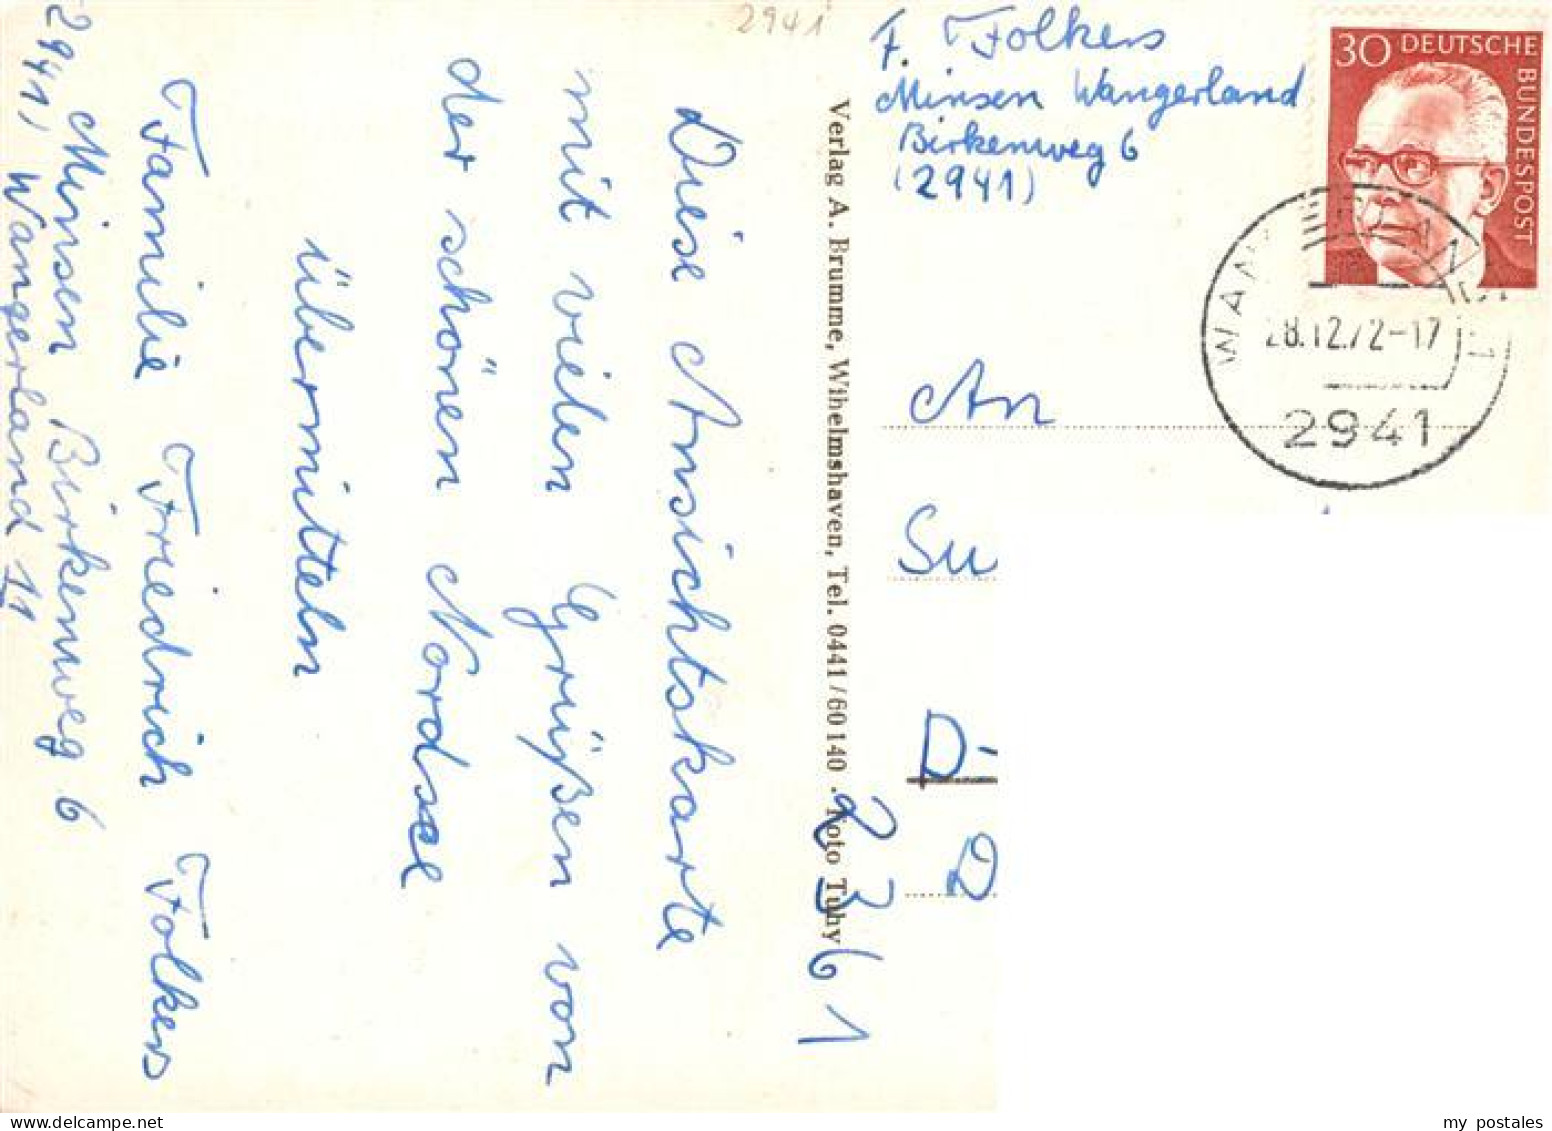 2941
Diese Ansichtskarte
mit vielen Grüßen von
der schönen Nordsee
übermitteln
Familie Friedrich Folkers
Minsen Birkenweg 6
2941) Wangerland 11
Verlag A. Brumme, Wihelmshaven, Tel. 0441/60140 . Foto Tuhy
2361
F. Folkers
Minsen Wangerland
Birkenweg 6
(2941)
30 DEUTSCHE
BUNDESPOST
28.12.72-17
2941
An
Su
D-
D
my postales